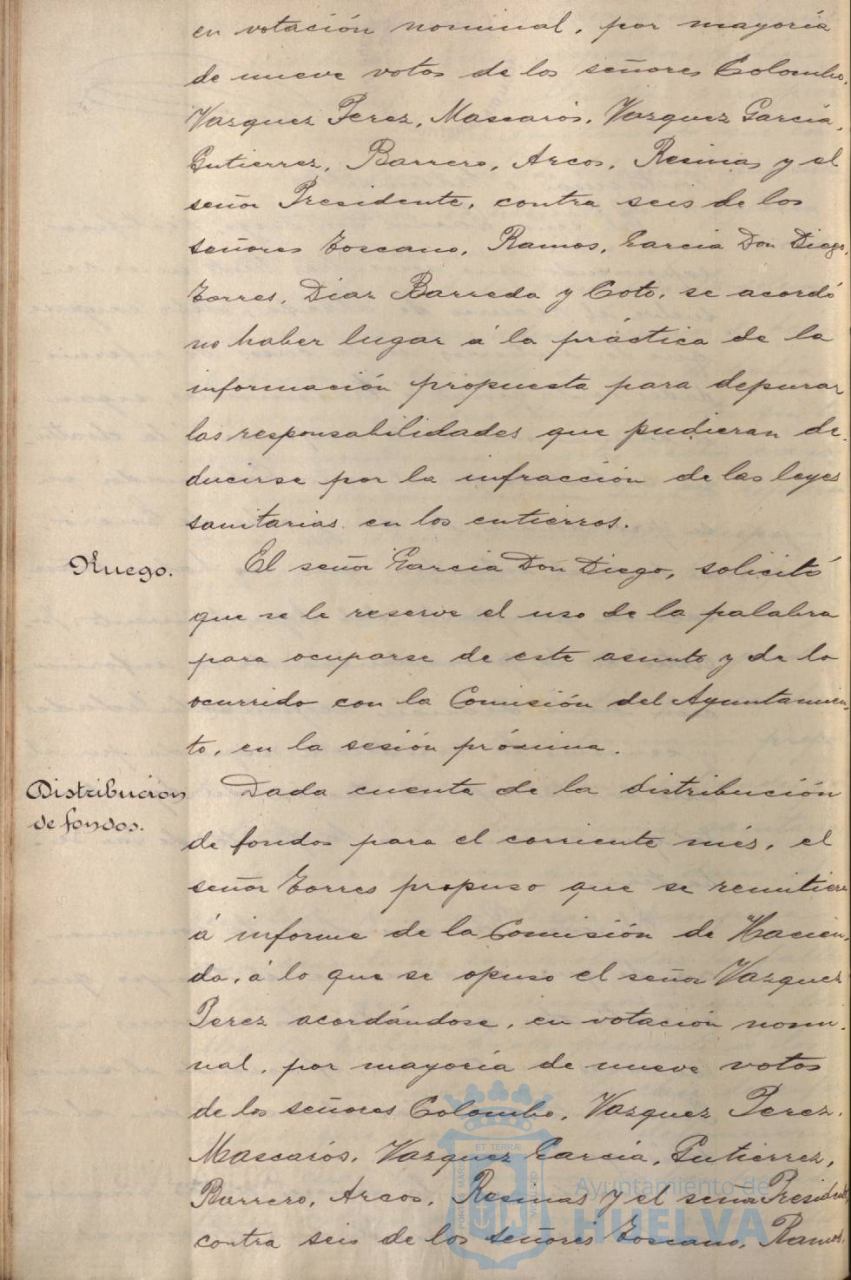 en votación nominal, por mayoría
de nueve votos de los señores Colombo,
Vazquez Perez, Mascarós, Vazquez García,
Gutierrez, Barrero, Arcos, Resinas y el
señor Presidente, contra seis de los
señores Toscano, Ramos, Garcia Don Diego,
Torres, Diaz Barreda y Coto, se acordó
no haber lugar á la práctica de la
información propuesta para depurar
las responsabilidades que pudieran de-
ducirse por la infracción de las leyes
sanitarias en los entierros.
Ruego.
El señor Garcia Don Diego, solicitó
que se le reserve el uso de la palabra
para ocuparse de este asunto y de lo
ocurrido con la Comisión del Ayuntamien-
to, en la sesión próxima.
Distribucion
de fondos.
Dada cuenta de la distribución
de fondos para el corriente més, el
señor Torres propuso que se remitiera
á informe de la Comisión de Hacien-
da, á lo que se opuso el señor Vazquez
Perez acordándose, en votación nomi-
nal, por mayoría de nueve votos
de los señores Colombo, Vazquez Perez,
Mascarós, Vazquez García, Gutierrez,
Barrero, Arcos, Resinas y el señor Presidente,
contra seis de los señores Toscano, Ramos,
Ayuntamiento de
HUELVA